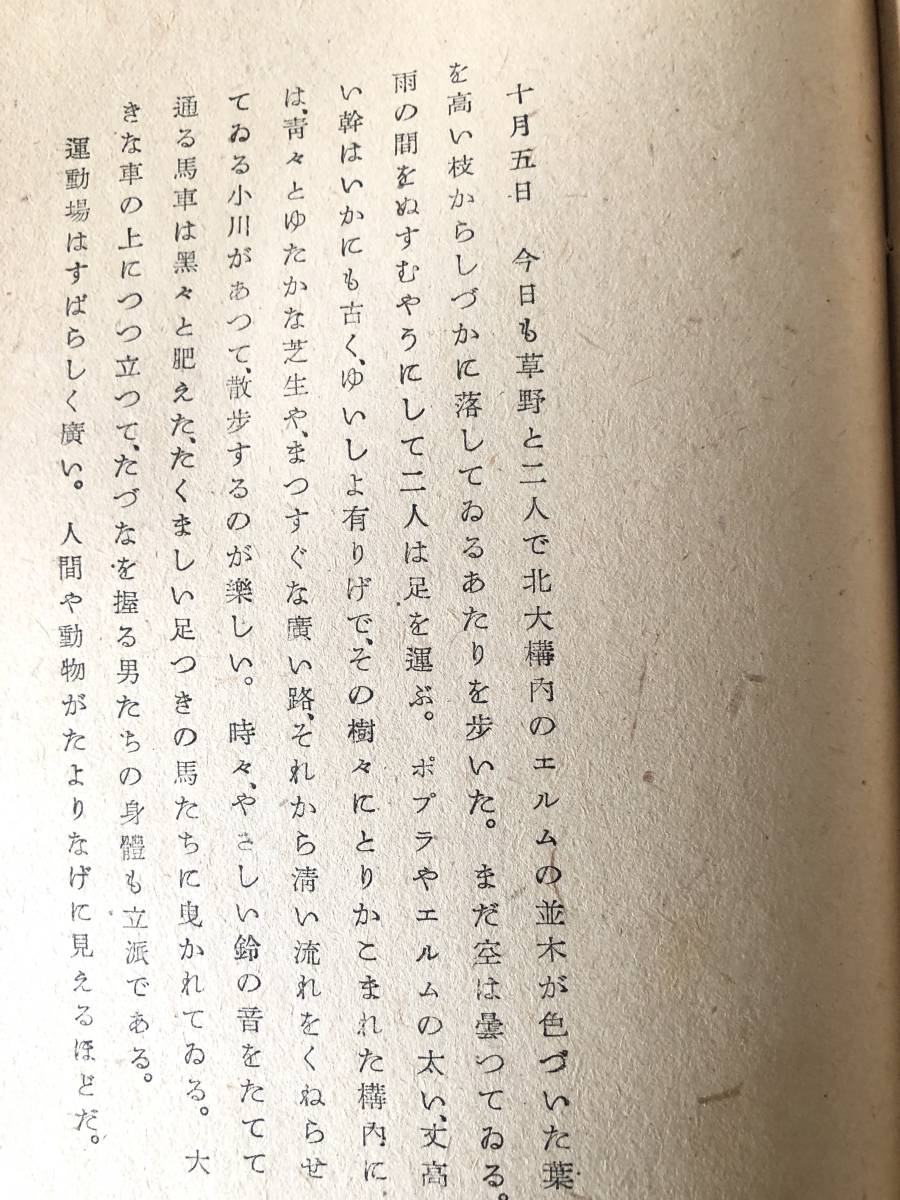 十月五日　今日も草野と二人で北大構內のエルムの並木が色づいた葉
を高い枝からしづかに落してゐるあたりを歩いた。まだ空は曇つてゐる。
雨の間をぬすむやうにして二人は足を運ぶ。ポプラやエルムの太い、丈高
い幹はいかにも古く、ゆいしよ有りげで、その樹々にとりかこまれた構內に
は、靑々とゆたかな芝生や、まつすぐな廣い路、それから淸い流れをくねらせ
てゐる小川があつて、散步するのが樂しい。時々、やさしい鈴の音をたてて
通る馬車は黑々と肥えた、たくましい足つきの馬たちに曳かれてゐる。大
きな車の上につつ立つて、たづなを握る男たちの身體も立派である。
運動場はすばらしく廣い。人間や動物がたよりなげに見えるほどだ。